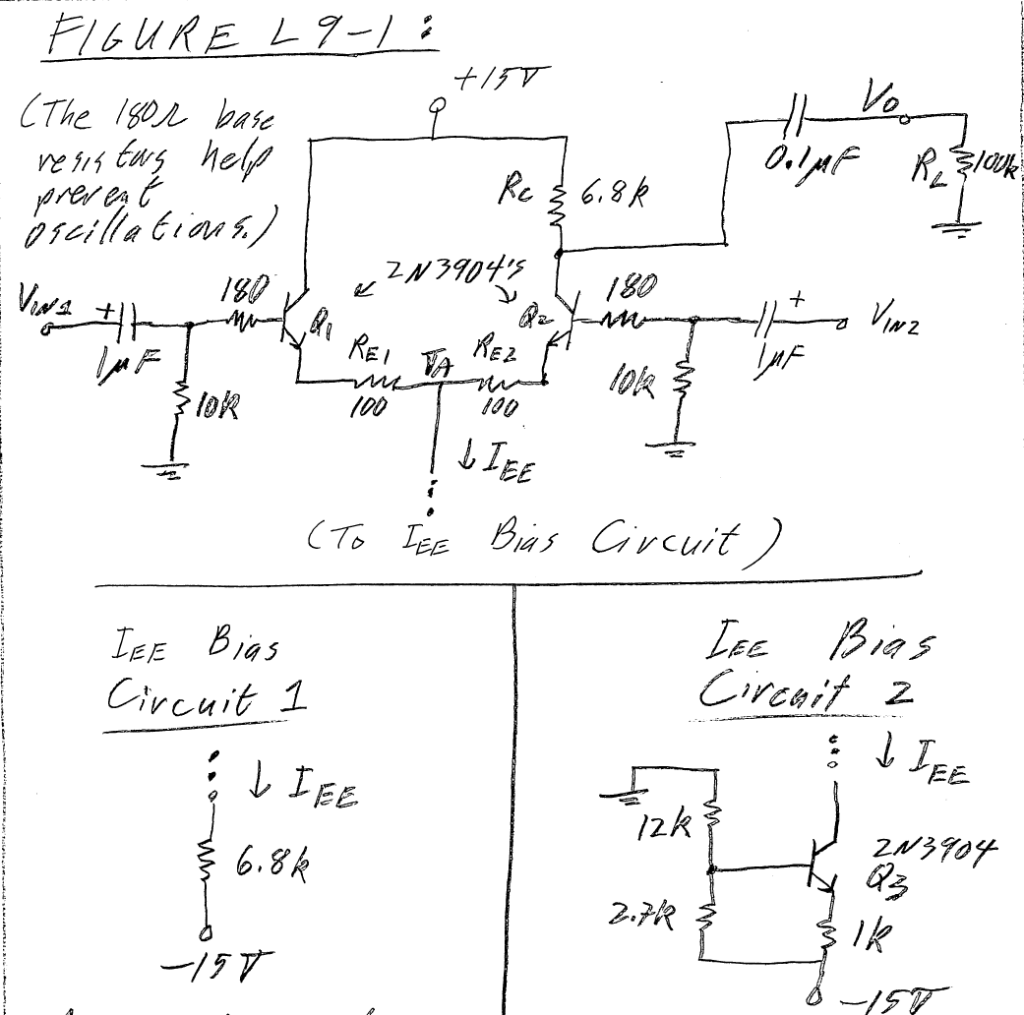 FIGURE L9-1:
+15V
(The 180Ω base
resistors help
prevent
oscillations.)
Vo
0.1μF
RL
100k
Rc
6.8k
2N3904's
VIN1
+
1μF
180
Q1
10k
RE1
100
VA
RE2
100
Q2
180
10k
+
1μF
VIN2
↓ IEE
(To IEE Bias Circuit)
IEE Bias
Circuit 1
↓ IEE
6.8k
-15V
IEE Bias
Circuit 2
↓ IEE
12k
2N3904
Q3
2.7k
1k
-15V